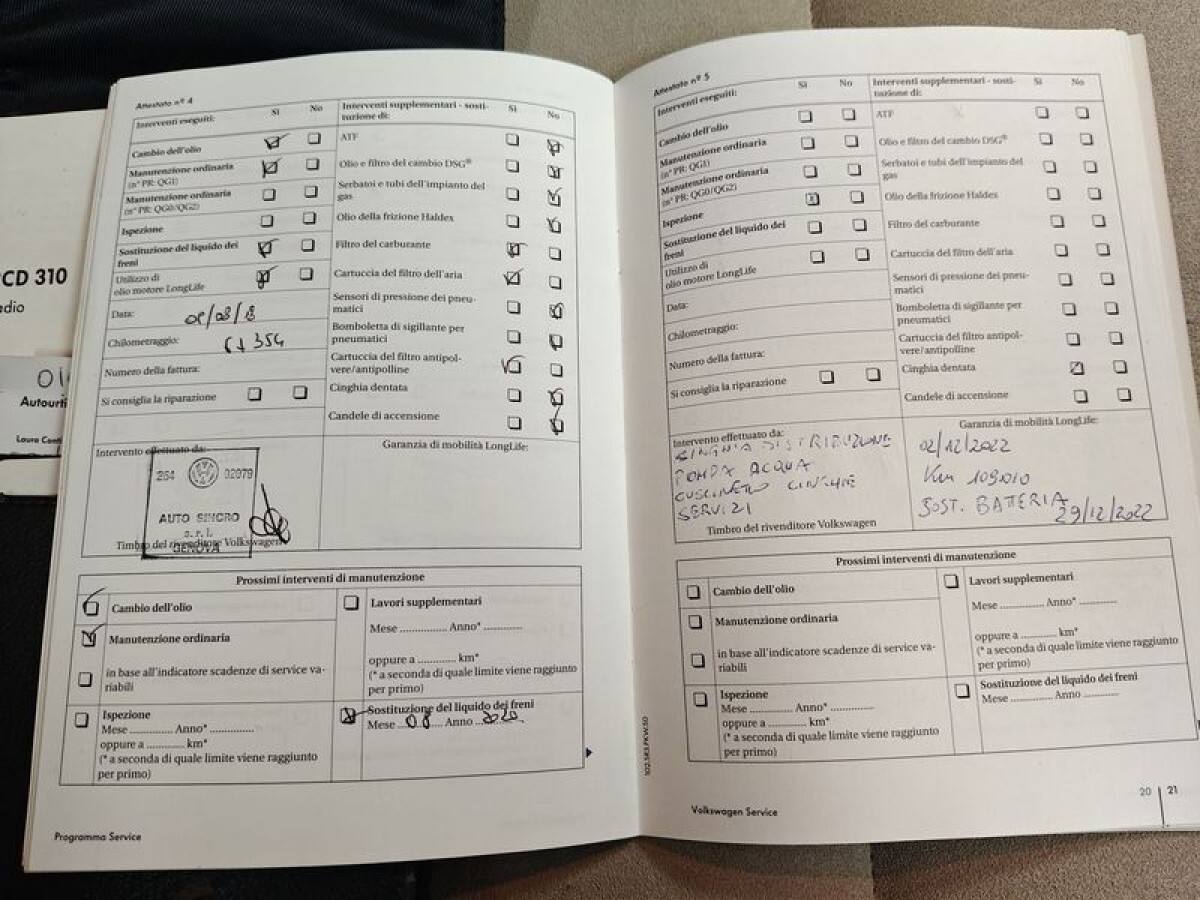 CD 310
dio
Autourt
Laura Cont
Attestato nº 4
Interventi eseguiti:
Sì
No
Cambio dell'olio
Manutenzione ordinaria
(nº PR: QG1)
Manutenzione ordinaria
(nº PR: QG0/QG2)
Ispezione
Sostituzione del liquido dei
freni
Utilizzo di
olio motore LongLife
Data: 02/08/18
Chilometraggio: 61354
Numero della fattura:
Si consiglia la riparazione
Interventi supplementari - sosti-
tuzione di:
Sì
No
ATF
Olio e filtro del cambio DSG®
Serbatoi e tubi dell'impianto del
gas
Olio della frizione Haldex
Filtro del carburante
Cartuccia del filtro dell'aria
Sensori di pressione dei pneu-
matici
Bomboletta di sigillante per
pneumatici
Cartuccia del filtro antipol-
vere/antipolline
Cinghia dentata
Candele di accensione
Intervento effettuato da:
264 02079
AUTO SINCRO
s.r.l.
GENOVA
Timbro del rivenditore Volkswagen
Garanzia di mobilità LongLife:
Prossimi interventi di manutenzione
Cambio dell'olio
Manutenzione ordinaria
in base all'indicatore scadenze di service va-
riabili
Ispezione
Mese ............ Anno* ..............
oppure a ............ km*
(* a seconda di quale limite viene raggiunto
per primo)
Lavori supplementari
Mese ............... Anno* .............
oppure a ............ km*
(* a seconda di quale limite viene raggiunto
per primo)
Sostituzione del liquido dei freni
Mese 08 Anno 2020
Programma Service
Attestato nº 5
Interventi eseguiti:
Sì
No
Cambio dell'olio
Manutenzione ordinaria
(nº PR: QG1)
Manutenzione ordinaria
(nº PR: QG0/QG2)
Ispezione
Sostituzione del liquido dei
freni
Utilizzo di
olio motore LongLife
Data:
Chilometraggio:
Numero della fattura:
Si consiglia la riparazione
Interventi supplementari - sosti-
tuzione di:
Sì
No
ATF
Olio e filtro del cambio DSG®
Serbatoi e tubi dell'impianto del
gas
Olio della frizione Haldex
Filtro del carburante
Cartuccia del filtro dell'aria
Sensori di pressione dei pneu-
matici
Bomboletta di sigillante per
pneumatici
Cartuccia del filtro antipol-
vere/antipolline
Cinghia dentata
Candele di accensione
Intervento effettuato da:
CINGHIA DISTRIBUZIONE
POMPA ACQUA
CUSCINETTO CINGHIE
SERVIZI
Timbro del rivenditore Volkswagen
Garanzia di mobilità LongLife:
02/12/2022
Km 109010
SOST. BATTERIA
29/12/2022
Prossimi interventi di manutenzione
Cambio dell'olio
Manutenzione ordinaria
in base all'indicatore scadenze di service va-
riabili
Ispezione
Mese ............ Anno* ............
oppure a ............ km*
(* a seconda di quale limite viene raggiunto
per primo)
Lavori supplementari
Mese ............... Anno* ............
oppure a ............ km*
(* a seconda di quale limite viene raggiunto
per primo)
Sostituzione del liquido dei freni
Mese ............ Anno ............
Volkswagen Service
20 | 21